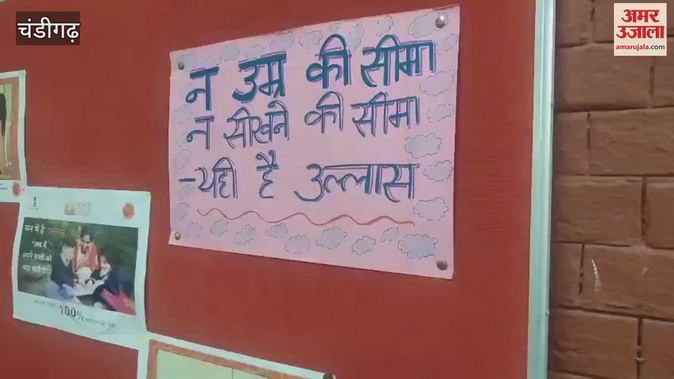 चंडीगढ़
अमर
उजाला
amarujala.com
न उम्र की सीमा
न सीखने की सीमा
-यही है उल्लास
मन में है
100%